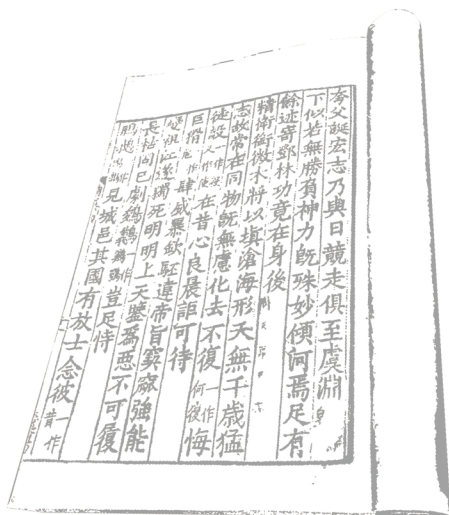 夸父誕宏志乃與日競走俱至虞淵
下似若無勝負神力旣殊妙傾河焉足有
餘迹寄鄧林功竟在身後
精衛銜微木將以塡滄海形夭無千歲猛
志故常在同物旣無慮化去不復一作何復悔
徒設在昔心良晨詎可待
巨猾肆威暴欽駓違帝旨窫窳強能
變祖江遂獨死明明上天鑒爲惡不可履
長枯固已劇鵕鶚一作豈足恃
見城邑其國有放士念彼一作昔